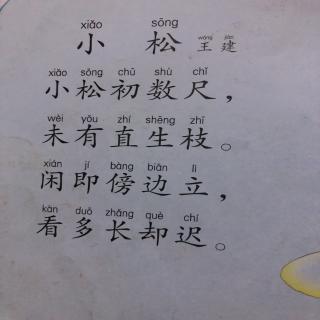 xiǎo sōng
小 松 wáng jiàn 王 建
xiǎo sōng chū shù chǐ
小 松 初 数 尺 ，
wèi yǒu zhí shēng zhī
未 有 直 生 枝 。
xián jí bàng biān lì
闲 即 傍 边 立 ，
kàn duō zhǎng què chí
看 多 长 却 迟 。